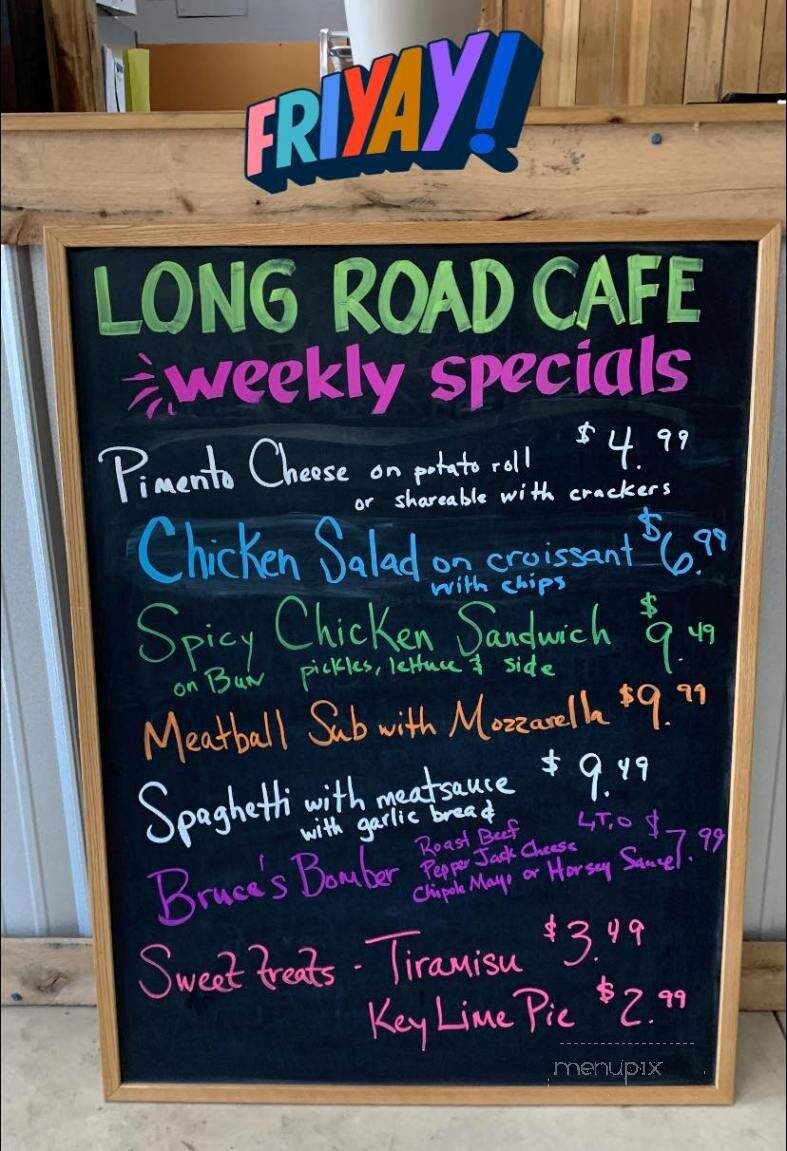 FRIYAY!
LONG ROAD CAFE
weekly specials
Pimento Cheese on potato roll $4.99
or shareable with crackers
Chicken Salad on croissant $6.99
with chips
Spicy Chicken Sandwich $9.49
on Bun pickles, lettuce & side
Meatball Sub with Mozzarella $9.99
Spaghetti with meatsauce $9.49
with garlic bread
Bruce's Bomber Roast Beef L,T,O $7.99
Pepper Jack Cheese
Chipole Mayo or Horsey Sauce
Sweet treats - Tiramisu $3.49
Key Lime Pie $2.99
menupix